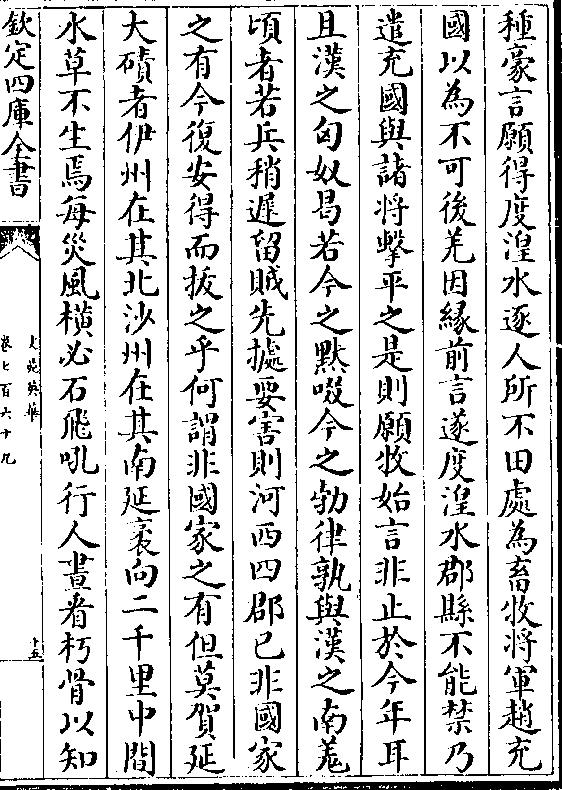 種豪言願得度湟水逐人所不田處為畜牧將軍趙充
國以為不可後羌因縁前言遂度湟水郡縣不能禁乃
遣充國與諸將擊平之是則願牧始言非止於今年耳
且漢之匈奴曷若今之黙啜今之勃律孰與漢之南羌
頃者若兵稍遲留賊先據要害則河西四郡已非國家
之有今復安得而拔之乎何謂非國家之有但莫賀延
大磧者伊州在其北沙州在其南延袤向二千里中間
水草不生焉每災風橫必石飛吼行人晝看朽骨以知
欽定四庫全書
文苑英華
卷七百六十九
十五